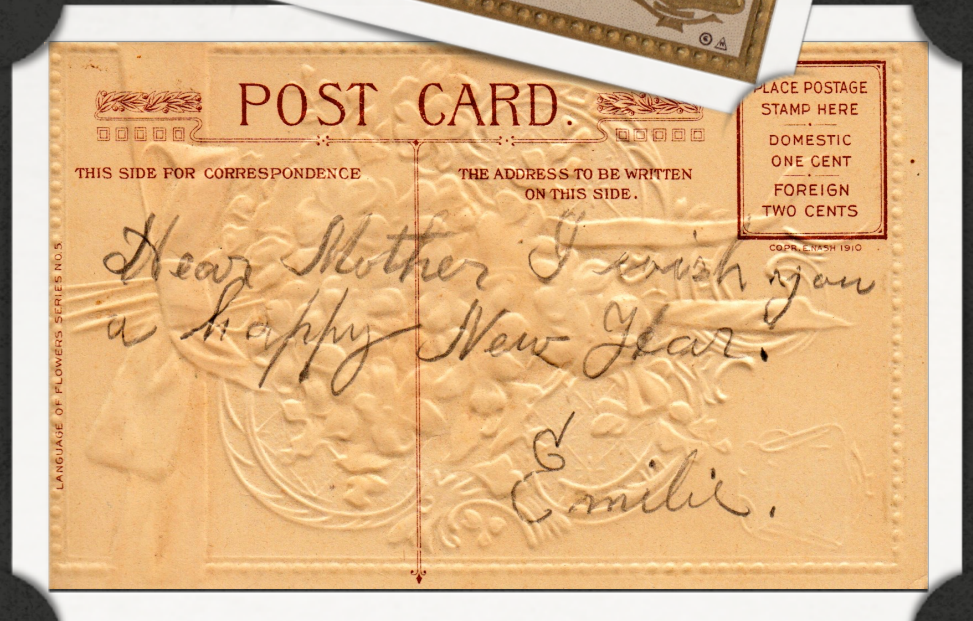 POST CARD.
THIS SIDE FOR CORRESPONDENCE
THE ADDRESS TO BE WRITTEN
ON THIS SIDE.
PLACE POSTAGE
STAMP HERE
DOMESTIC
ONE CENT
FOREIGN
TWO CENTS
COPR. E. NASH 1910
LANGUAGE OF FLOWERS SERIES NO. 5
Dear Mother I wish you
a happy New Year.
Emilie.